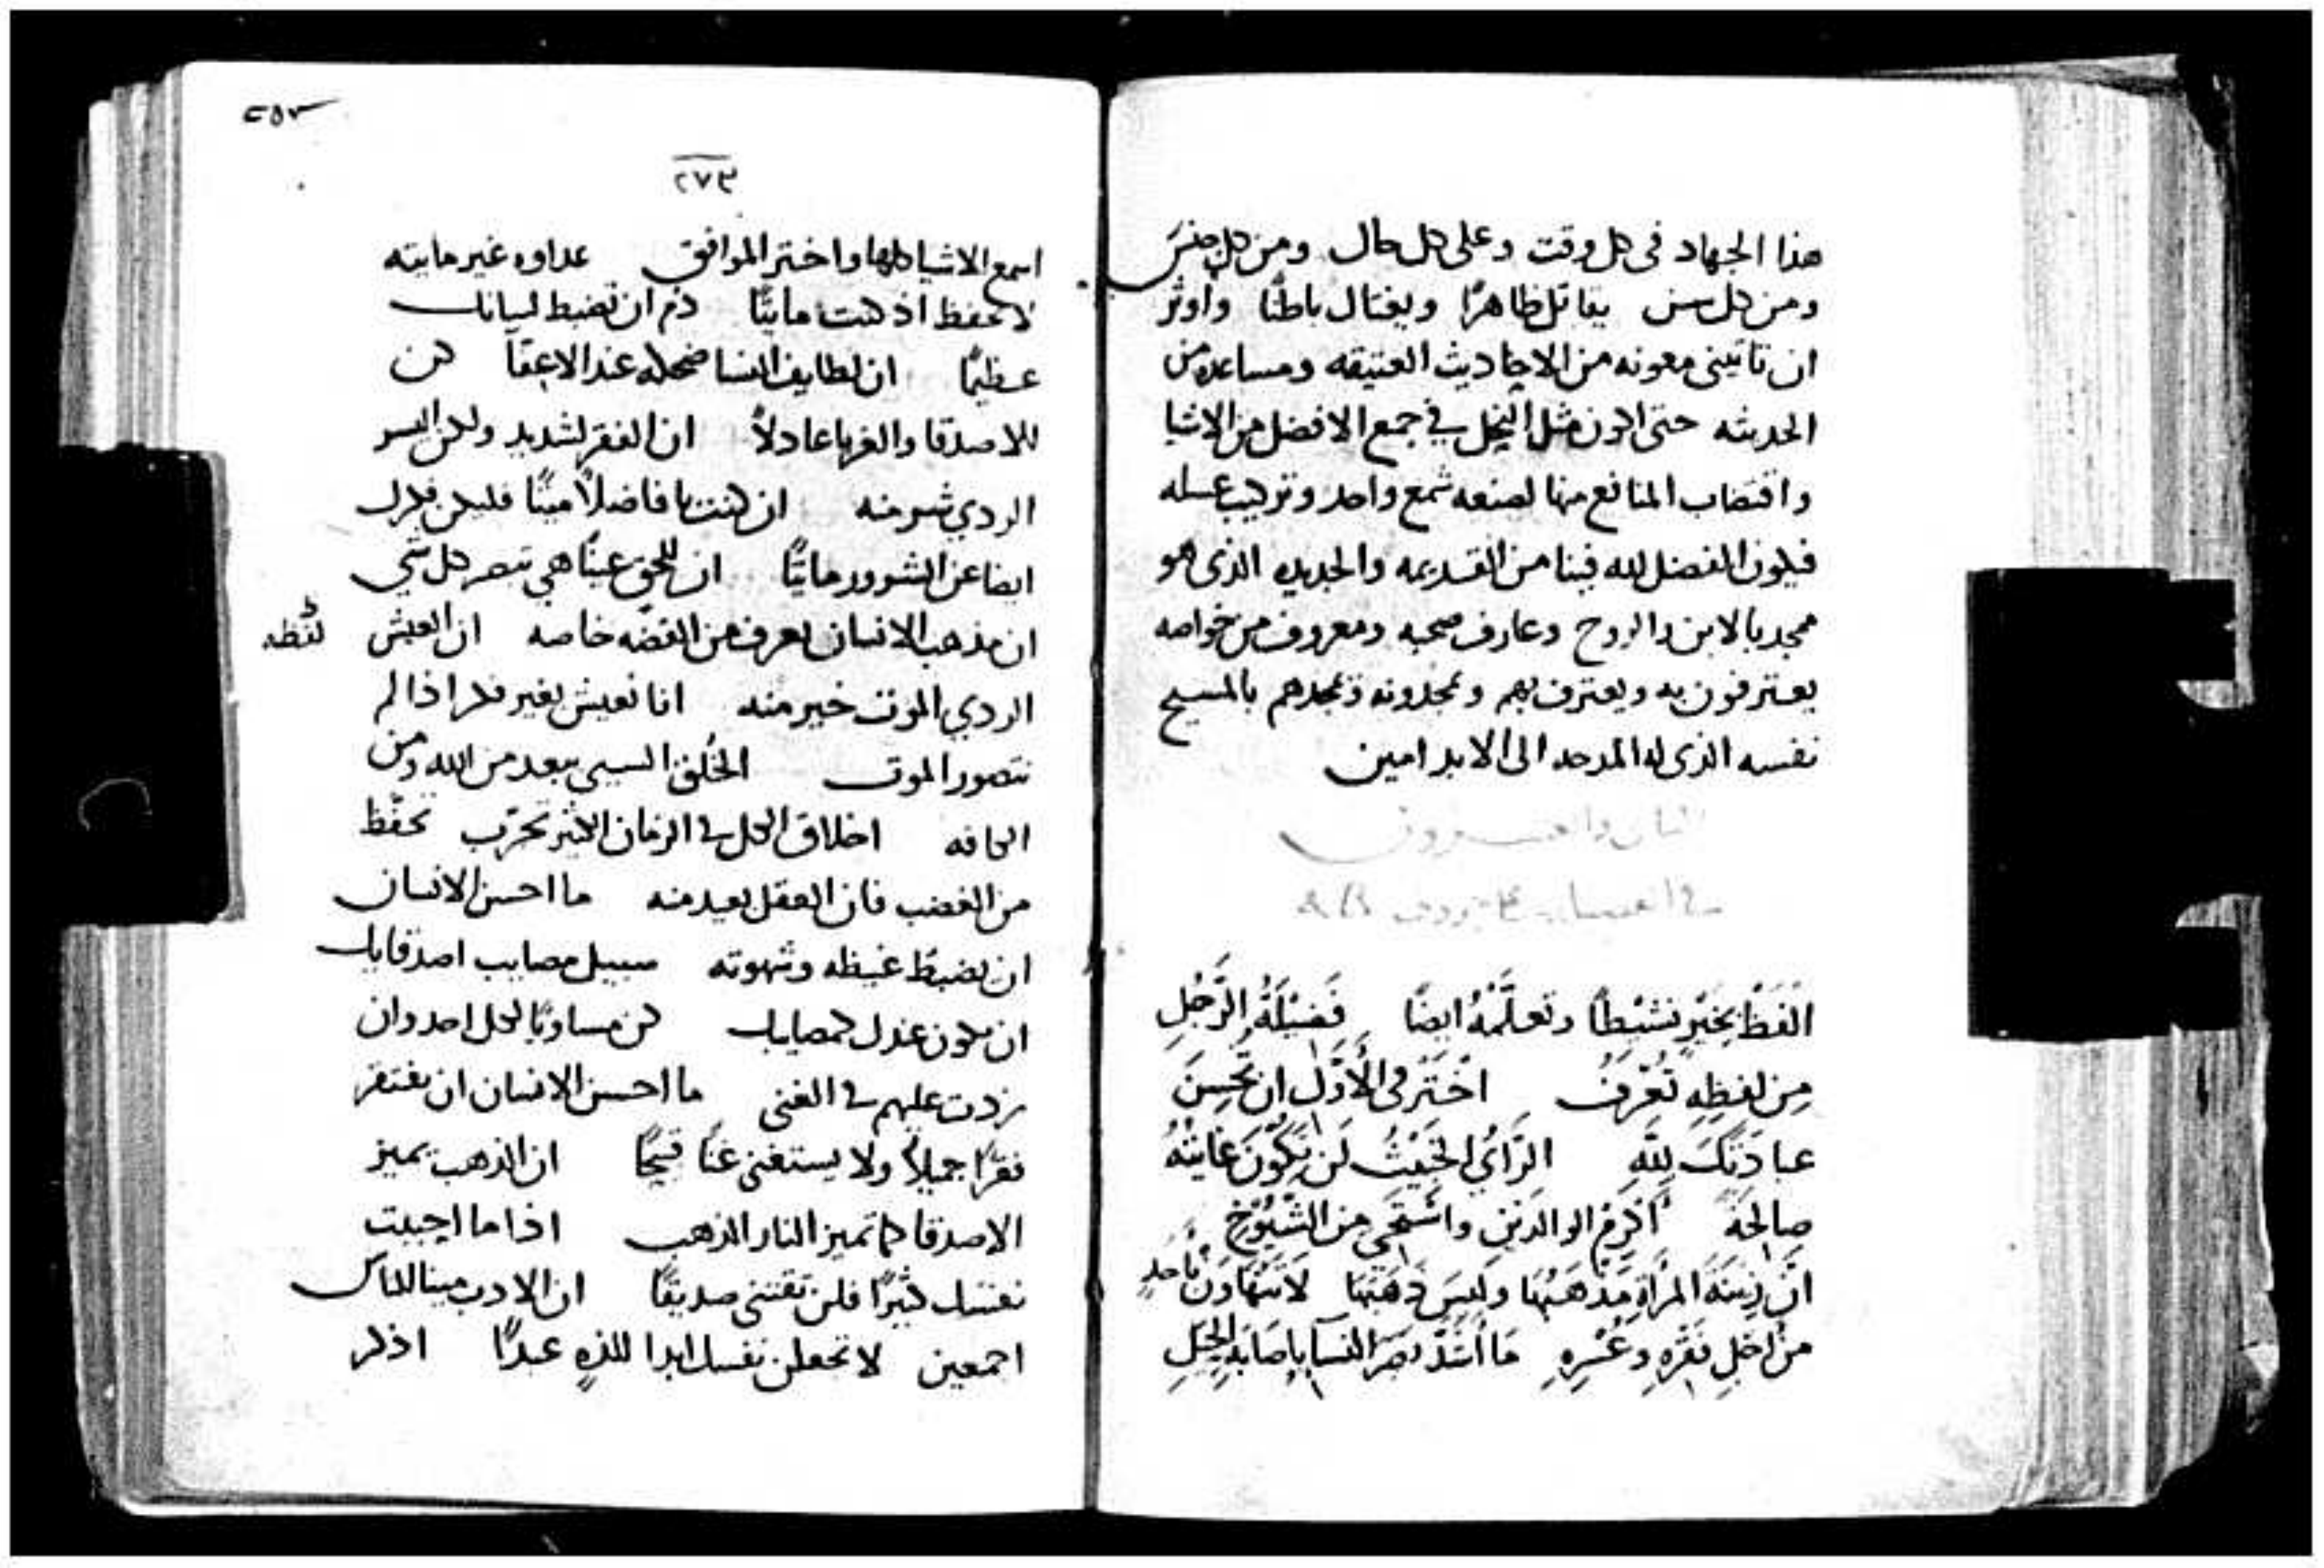 هذا الجهاد فى كل وقت وعلى كل حال ومن كل جنس
ومن كل سن يقاتل ظاهرًا ويغتال باطنًا واوثر
ان تاتينى معونه من الاحاديث العتيقه ومساعده من
الحديثه حتى اكون مثل النحل في جمع الافضل من الاشيا
واقتضاب المنافع منها لصنعه شمع واحد وتركيب عسله
فيكون الفضل لله فينا من القديمه والجديده الذى هو
ممجد بالابن والروح وعارف صحبه ومعروف من خواصه
يعترفون به ويعترف بهم ويمجدونه ويمجدهم بالمسيح
نفسه الذى له المدحه الى الابد امين
الفَظْ بِخَيْرٍ نشيْطًا وتعلَّمْهُ ايضًا فَضِيْلَةُ الرَّجُلِ
مِن لفظِهِ تُعْرَفُ اخْتَر فى الأوَّل ان تُحْسِنَ
عبادَتكَ لِلَّهِ الرَّأيُ الخَبيْثُ لَن تَكُوْنَ غَايتُهُ
صالحَةً أكرِم الوالدَينِ واسْتَحَي من الشُّيُوْخِ
انَّ زِينَةَ المرْأةِ مَذْهَبُهَا وليسَ ذَهَبُهَا لا تتهَاوَن بأحَدٍ
من اجَلِ فَقْرِهِ وعُسْرِهِ مَا أشَدَّ بصَرَ النسآ باصَابَةِ الحِيَلِ
٢٥٣
٢٧٣
اسمع الاشيا كلها واختر الموافق عداوه غير مايته
لا تحفظ اذ كنت مايتًا رُم ان تضبط لسانك
عظيمًا ان لطايف النسا ضحكه عند الاعقآ كن
للاصدقا والغربا عادلاً ان الفقر لشديد ولكن اليسر
الردي شر منه ان كنت يا فاضلاً ميتًا فليكن فكرك
ايضا عن الشرور مايتًا ان للحق عينًا هي تبصر كل شي
ان مذهب الانسان يعرف من القصّه خاصه ان العيش
لفظه
الردي الموت خير منه انا نعيش بغير فكر اذا لم
نتصور الموت الخُلق السيي يبعد من الله ومن
الكافه اخلاق الكل في الزمان الاثير تحرّب تحفّظ
من الغضب فان العقل بعيد منه ما احسن الانسان
ان يضبط غيظه وشهوته سبيل مصايب اصدقايك
ان تكون عندك كمصايبك كن مساويًا لكل احد وان
زدت عليهم في الغنى ما احسن الانسان ان يفتقر
فقرًا جميلاً ولا يستغنى غنًا قبيحًا ان الذهب يميز
الاصدقا كما تميز النار الذهب اذا ما احببت
نفسك كثيرًا فلن تقتنى صديقًا ان الادب مينا للناس
اجمعين لا تجعلن نفسك ابدا للذهِ عبدًا اذكر